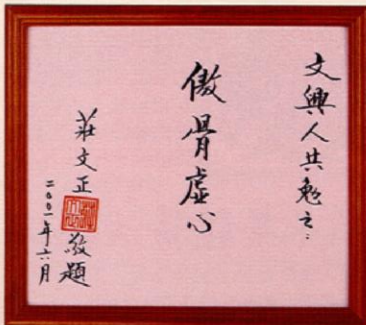 文興人共勉之：
傲骨虛心
莊文正敬題
二〇〇一年六月